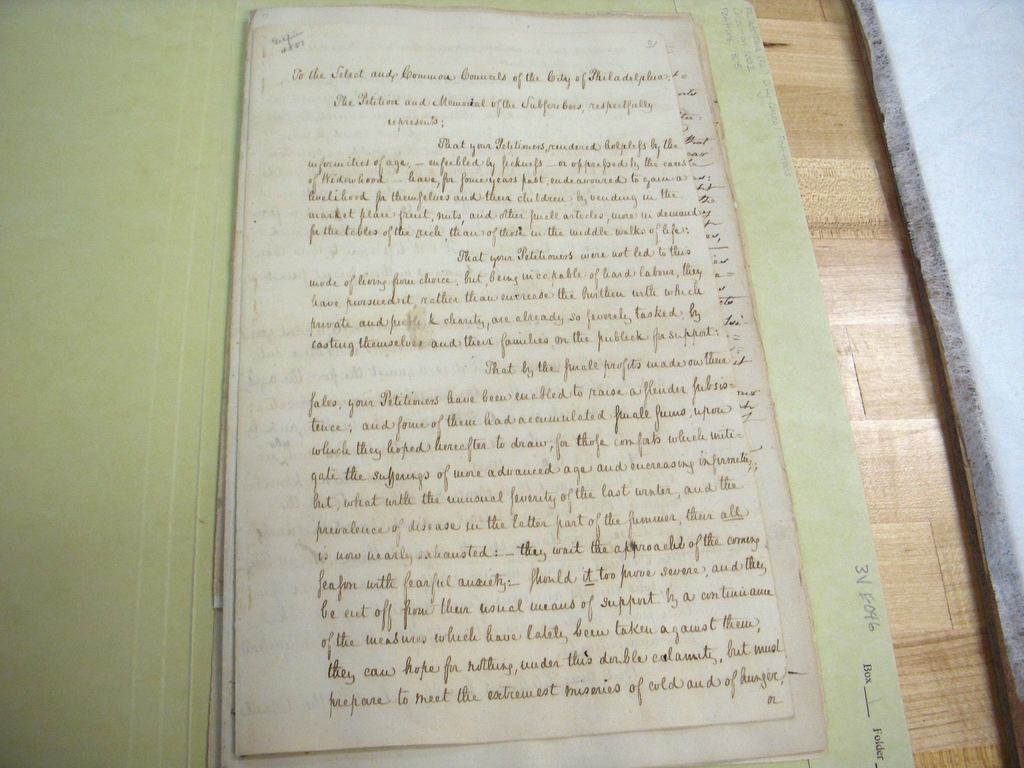 31
To the Select and Common Councils of the City of Philadelphia.
The Petition and Memorial of the Subscribers, respectfully
represents:
That your Petitioners, rendered helpless by the
infirmities of age, — enfeebled by sickness — or oppressed by the cares
of Widowhood — have, for some years past, endeavoured to gain a
livelihood for themselves and their children by vending in the
market place fruit, nuts, and other small articles, more in demand
for the tables of the rich, than of those in the middle walks of life:
That your Petitioners were not led to this
mode of living from choice, but, being incapable of hard labour, they
have pursued it, rather than encrease the burthen with which
private and publick charity, are already so severely tasked, by
casting themselves and their families on the publick for support:
That by the small profits made on their
sales, your Petitioners have been enabled to raise a slender subsis=
tence; and some of them had accumulated small sums, upon
which they hoped hereafter to draw, for those comforts which miti-
gate the sufferings of more advanced age and encreasing infirmity;
but, what with the unusual severity of the last winter, and the
prevalence of disease in the latter part of the summer, their all
is now nearly exhausted: — they wait the approaches of the coming
season with fearful anxiety: — Should it too prove severe, and they
be cut off from their usual means of support by a continuance
of the measures which have lately been taken against them,
they can hope for nothing, under this double calamity, but must
prepare to meet the extremest miseries of cold and of hunger, —
or
3V F046
Box
Folder